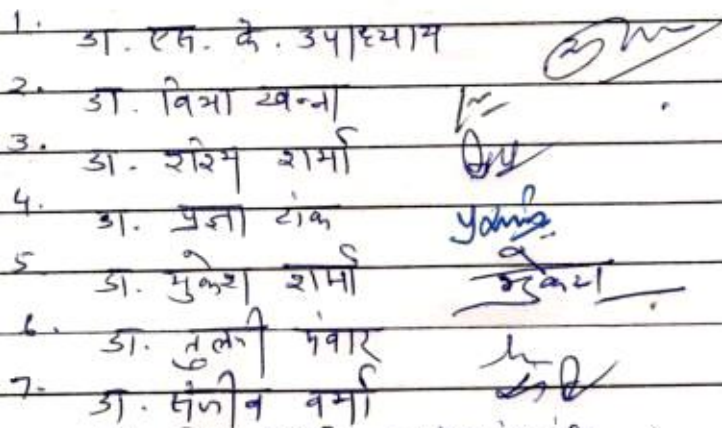 1. डा. एस. के. उपाध्याय
2. डा. विभा खन्ना
3. डा. रश्मि शर्मा
4. डा. प्रज्ञा टांक
5 डा. मुकेश शर्मा मुकेश
6. डा. तुलसी पंवार
7. डा. संजीव वर्मा